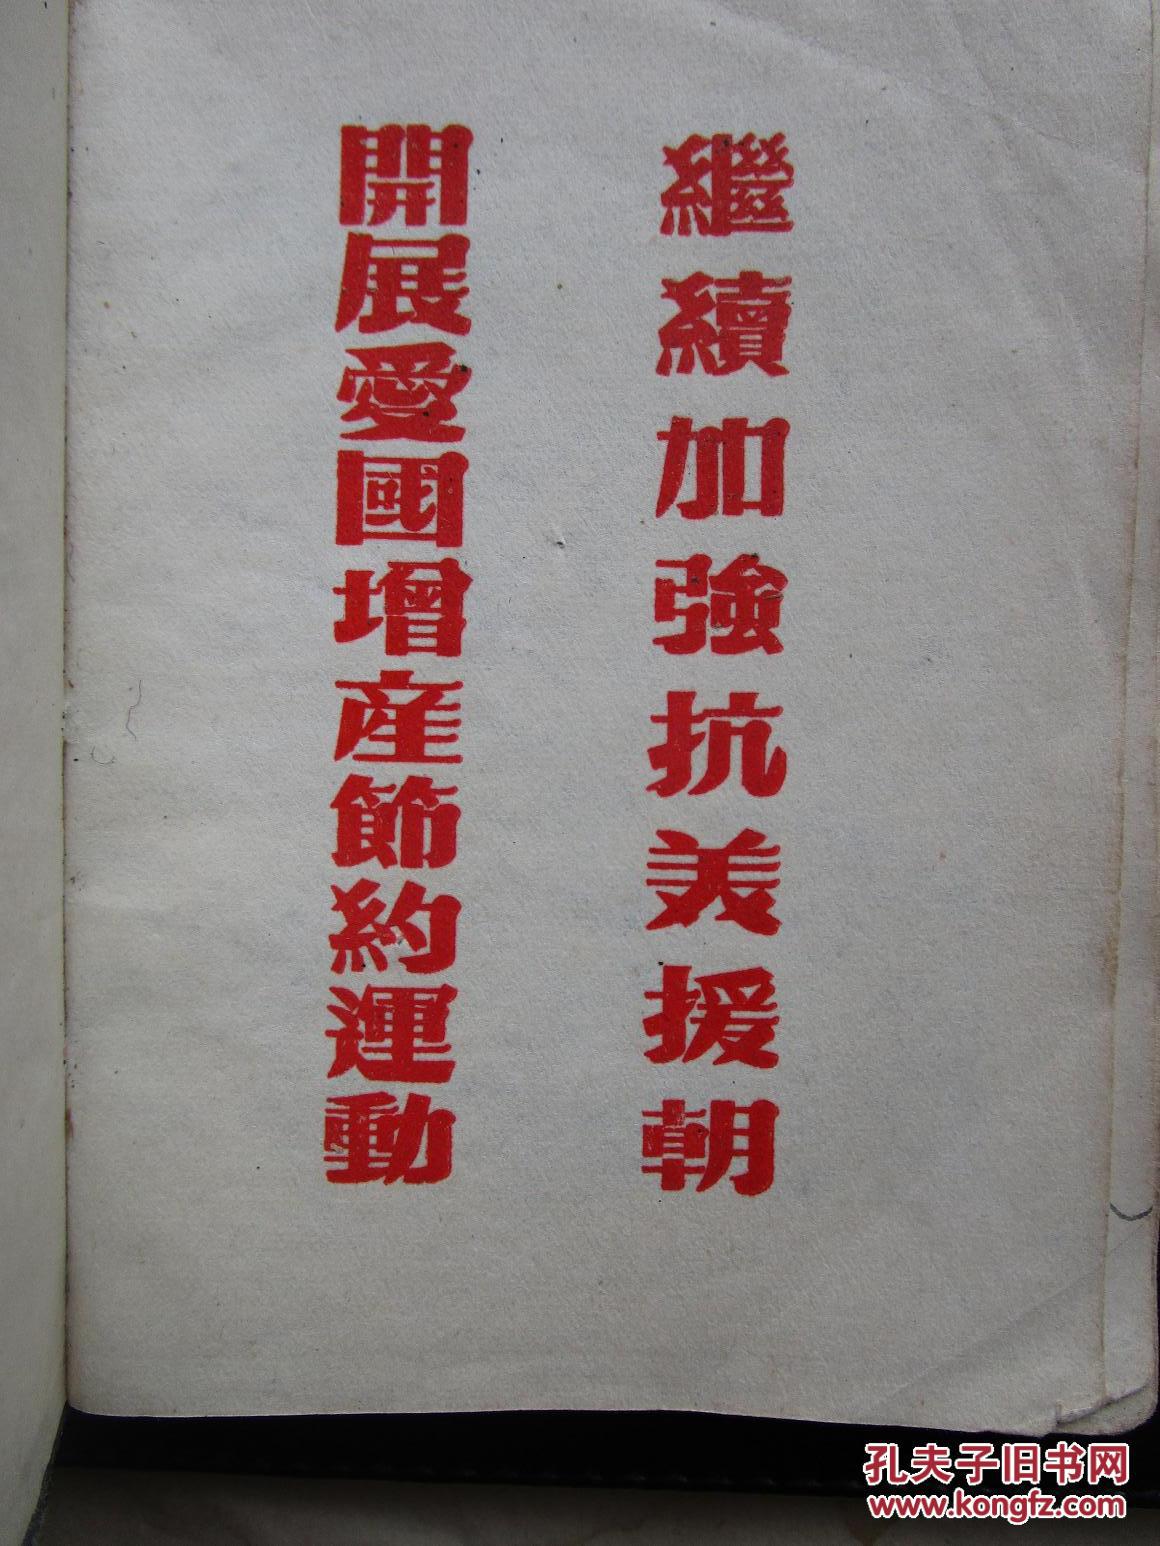 繼續加強抗美援朝
開展愛國增產節約運動
孔夫子旧书网
www.kongfz.com